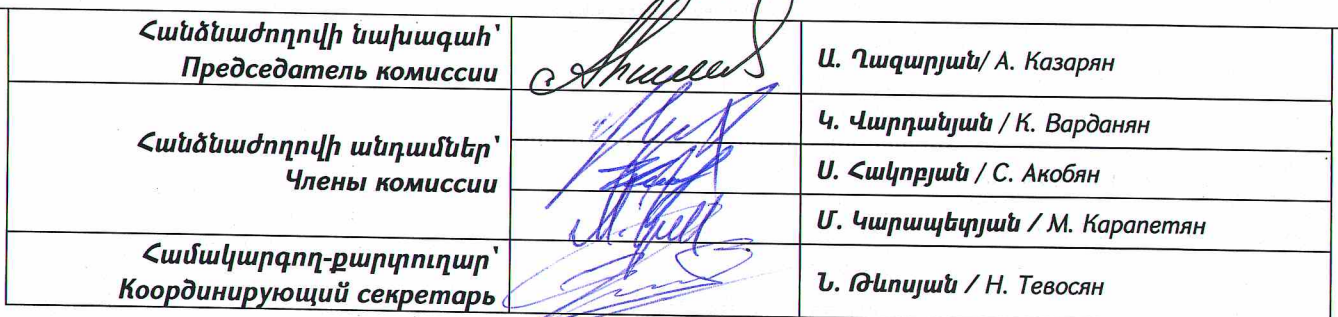 Հանձնաժողովի նախագահ՝
Председатель комиссии
Ա. Ղազարյան/ А. Казарян
Հանձնաժողովի անդամներ՝
Члены комиссии
Կ. Վարդանյան / К. Варданян
Ս. Հակոբյան / С. Акобян
Մ. Կարապետյան / М. Карапетян
Համակարգող-քարտուղար՝
Координирующий секретарь
Ն. Թևոսյան / Н. Тевосян